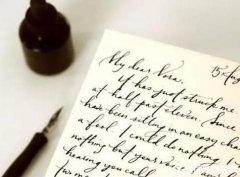 My dear Nora, 15 Aug
It has just struck me
at half past eleven. Since
have been sitting in an easy chair
a fool. I could do nothing. I
nothing but your voice. I am
hearing you call